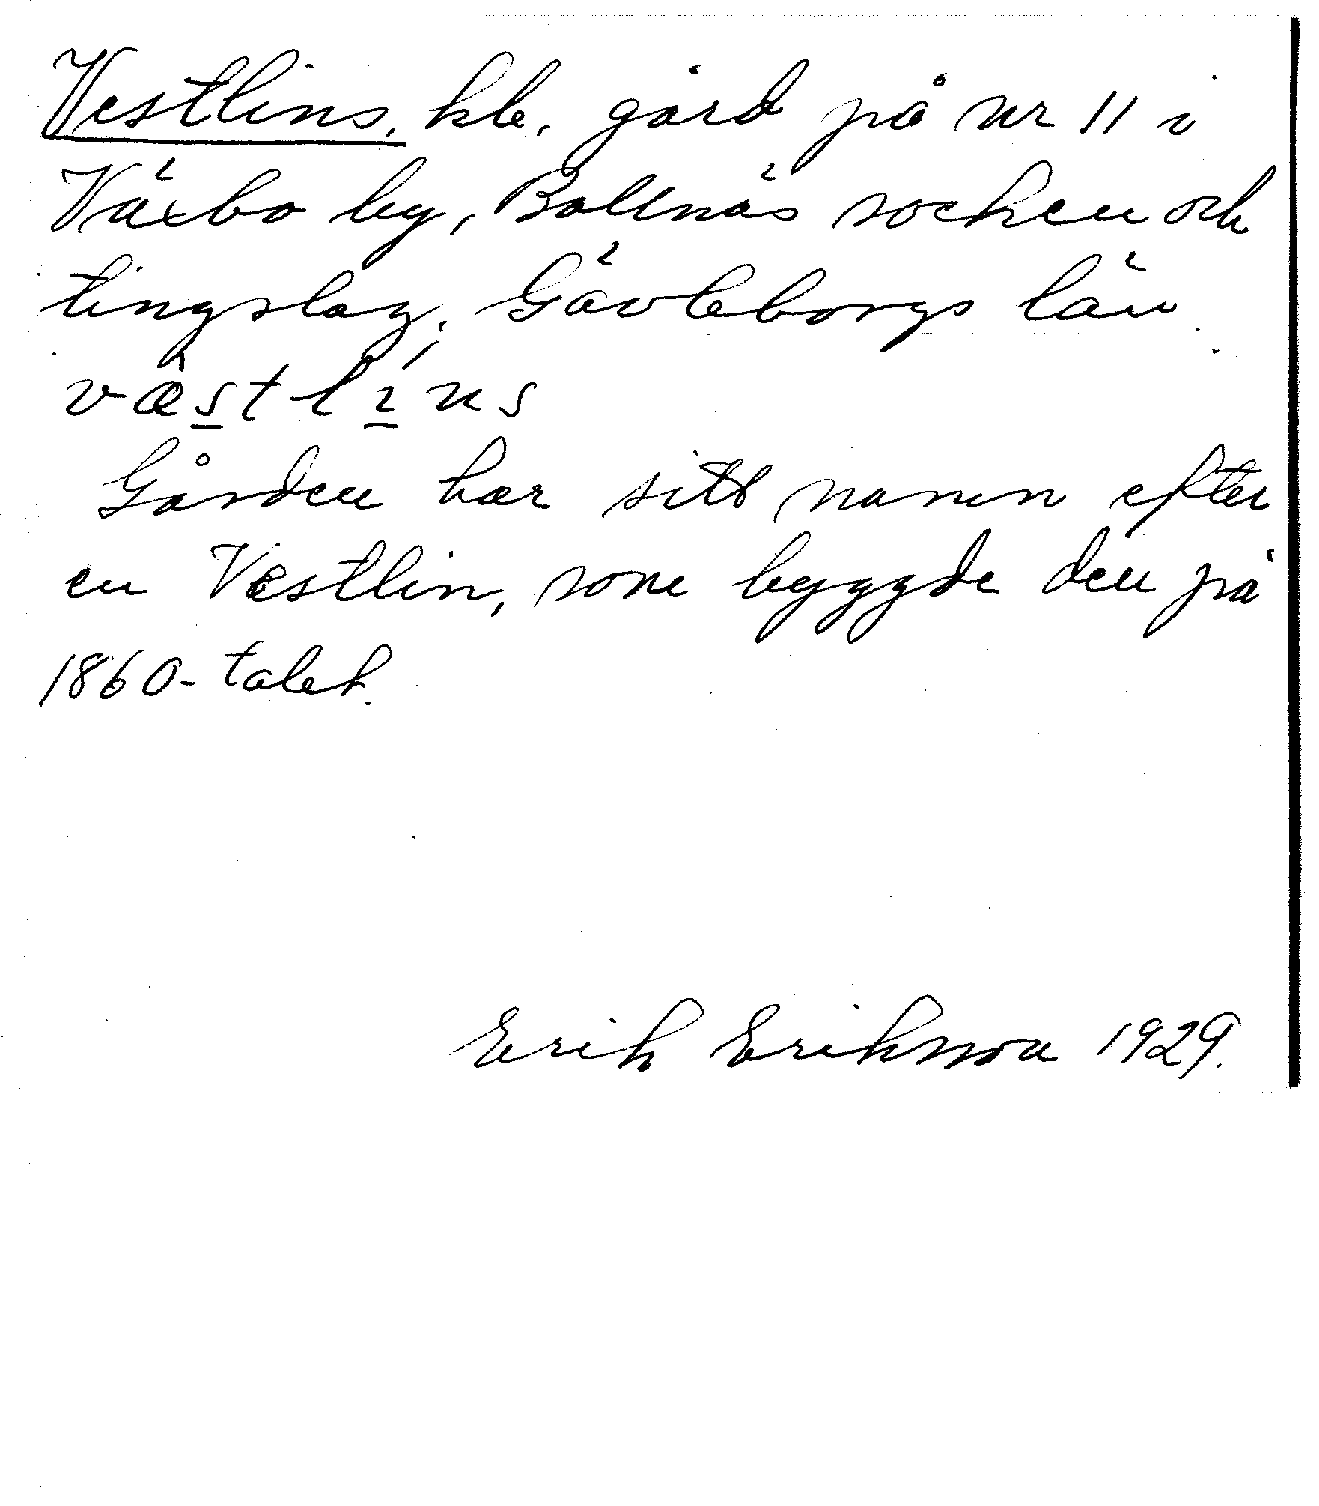 Vestlins, hb. gård på nr 11 i
Växbo by, Bollnäs socken och
tingslag, Gävleborgs län.
væstlíns
Gården har sitt namn efter
en Vestlin, som byggde den på
1860-talet.
Erik Eriksson 1929.